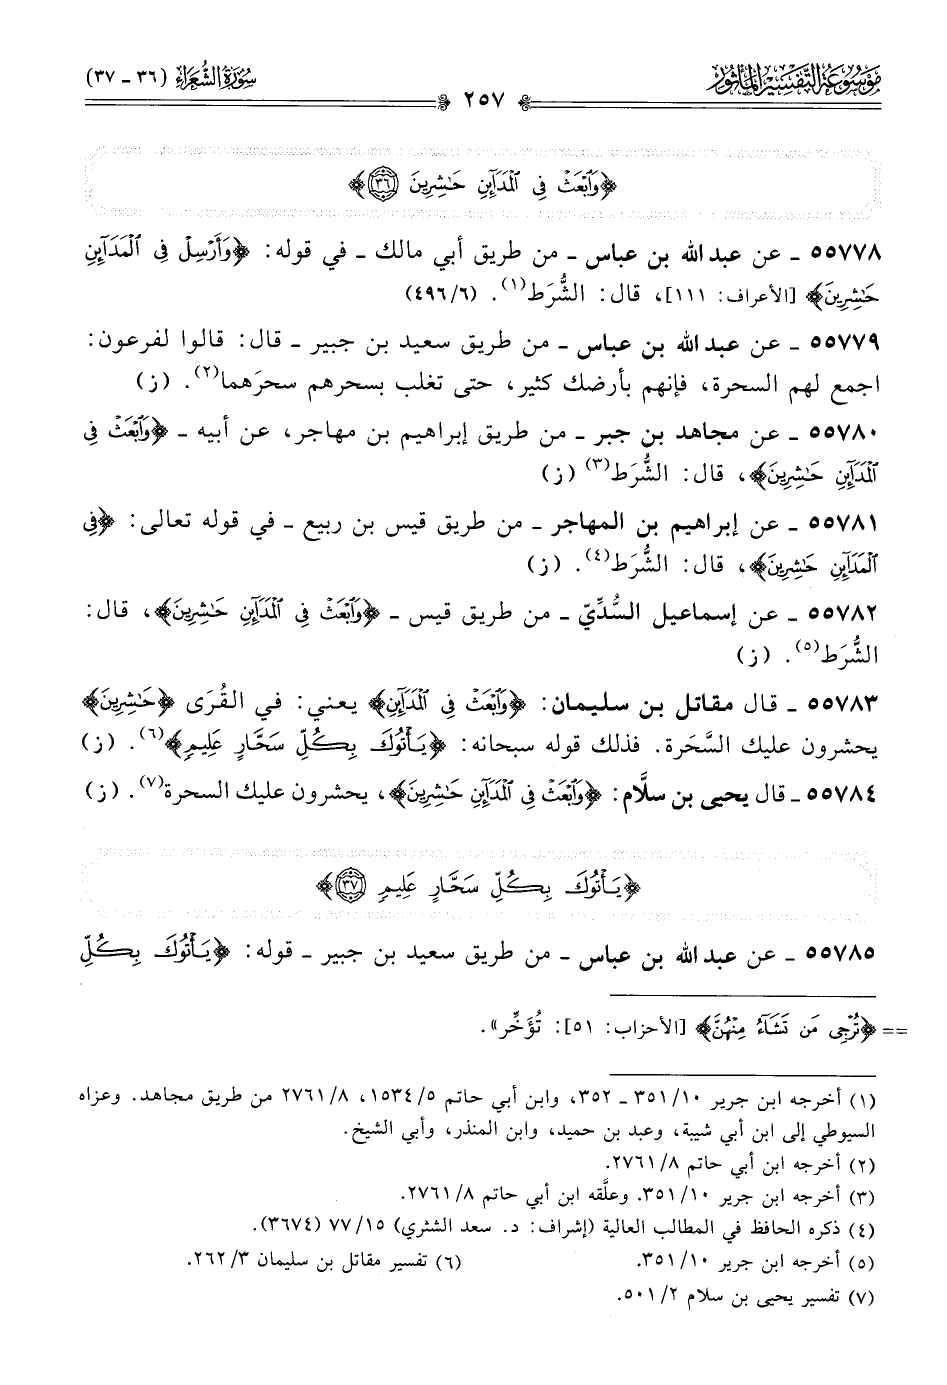 مَوْسُوعَةُ التَّفْسِيرِ المَأْثُورِ
سُورَةُ الشُّعَرَاء (٣٦ - ٣٧)
٢٥٧
﴿وَٱبۡعَثۡ فِي ٱلۡمَدَآئِنِ حَٰشِرِينَ ٣٦﴾
٥٥٧٧٨ - عن عبد الله بن عباس - من طريق أبي مالك - في قوله: ﴿وَأَرۡسِلۡ فِي ٱلۡمَدَآئِنِ
حَٰشِرِينَ﴾ [الأعراف: ١١١]، قال: الشُّرَط(١). (٤٩٦/٦)
٥٥٧٧٩ - عن عبد الله بن عباس - من طريق سعيد بن جبير - قال: قالوا لفرعون:
اجمع لهم السحرة، فإنهم بأرضك كثير، حتى تغلب بسحرهم سحرَهما(٢). (ز)
٥٥٧٨٠ - عن مجاهد بن جبر - من طريق إبراهيم بن مهاجر، عن أبيه - ﴿وَٱبۡعَثۡ فِي
ٱلۡمَدَآئِنِ حَٰشِرِينَ﴾، قال: الشُّرَط(٣) (ز)
٥٥٧٨١ - عن إبراهيم بن المهاجر - من طريق قيس بن ربيع - في قوله تعالى: ﴿فِي
ٱلۡمَدَآئِنِ حَٰشِرِينَ﴾، قال: الشُّرَط(٤). (ز)
٥٥٧٨٢ - عن إسماعيل السُّدِّيّ - من طريق قيس - ﴿وَٱبۡعَثۡ فِي ٱلۡمَدَآئِنِ حَٰشِرِينَ﴾، قال:
الشُّرَط(٥). (ز)
٥٥٧٨٣ - قال مقاتل بن سليمان: ﴿وَٱبۡعَثۡ فِي ٱلۡمَدَآئِنِ﴾ يعني: في القُرَى ﴿حَٰشِرِينَ﴾
يحشرون عليك السَّحَرة. فذلك قوله سبحانه: ﴿يَأۡتُوكَ بِكُلِّ سَحَّارٍ عَلِيمٖ﴾(٦). (ز)
٥٥٧٨٤ - قال يحيى بن سلَّام: ﴿وَٱبۡعَثۡ فِي ٱلۡمَدَآئِنِ حَٰشِرِينَ﴾، يحشرون عليك السحرة(٧). (ز)
﴿يَأۡتُوكَ بِكُلِّ سَحَّارٍ عَلِيمٖ ٣٧﴾
٥٥٧٨٥ - عن عبد الله بن عباس - من طريق سعيد بن جبير - قوله: ﴿يَأۡتُوكَ بِكُلِّ
== ﴿تُرۡجِي مَن تَشَآءُ مِنۡهُنَّ﴾ [الأحزاب: ٥١]: تُؤَخِّر».
(١) أخرجه ابن جرير ١٠/ ٣٥١ - ٣٥٢، وابن أبي حاتم ٥/ ١٥٣٤، ٨/ ٢٧٦١ من طريق مجاهد. وعزاه
السيوطي إلى ابن أبي شيبة، وعبد بن حميد، وابن المنذر، وأبي الشيخ.
(٢) أخرجه ابن أبي حاتم ٨/ ٢٧٦١.
(٣) أخرجه ابن جرير ١٠/ ٣٥١. وعلَّقه ابن أبي حاتم ٨/ ٢٧٦١.
(٤) ذكره الحافظ في المطالب العالية (إشراف: د. سعد الشثري) ١٥/ ٧٧ (٣٦٧٤).
(٥) أخرجه ابن جرير ١٠/ ٣٥١.
(٦) تفسير مقاتل بن سليمان ٣/ ٢٦٢.
(٧) تفسير يحيى بن سلام ٢/ ٥٠١.